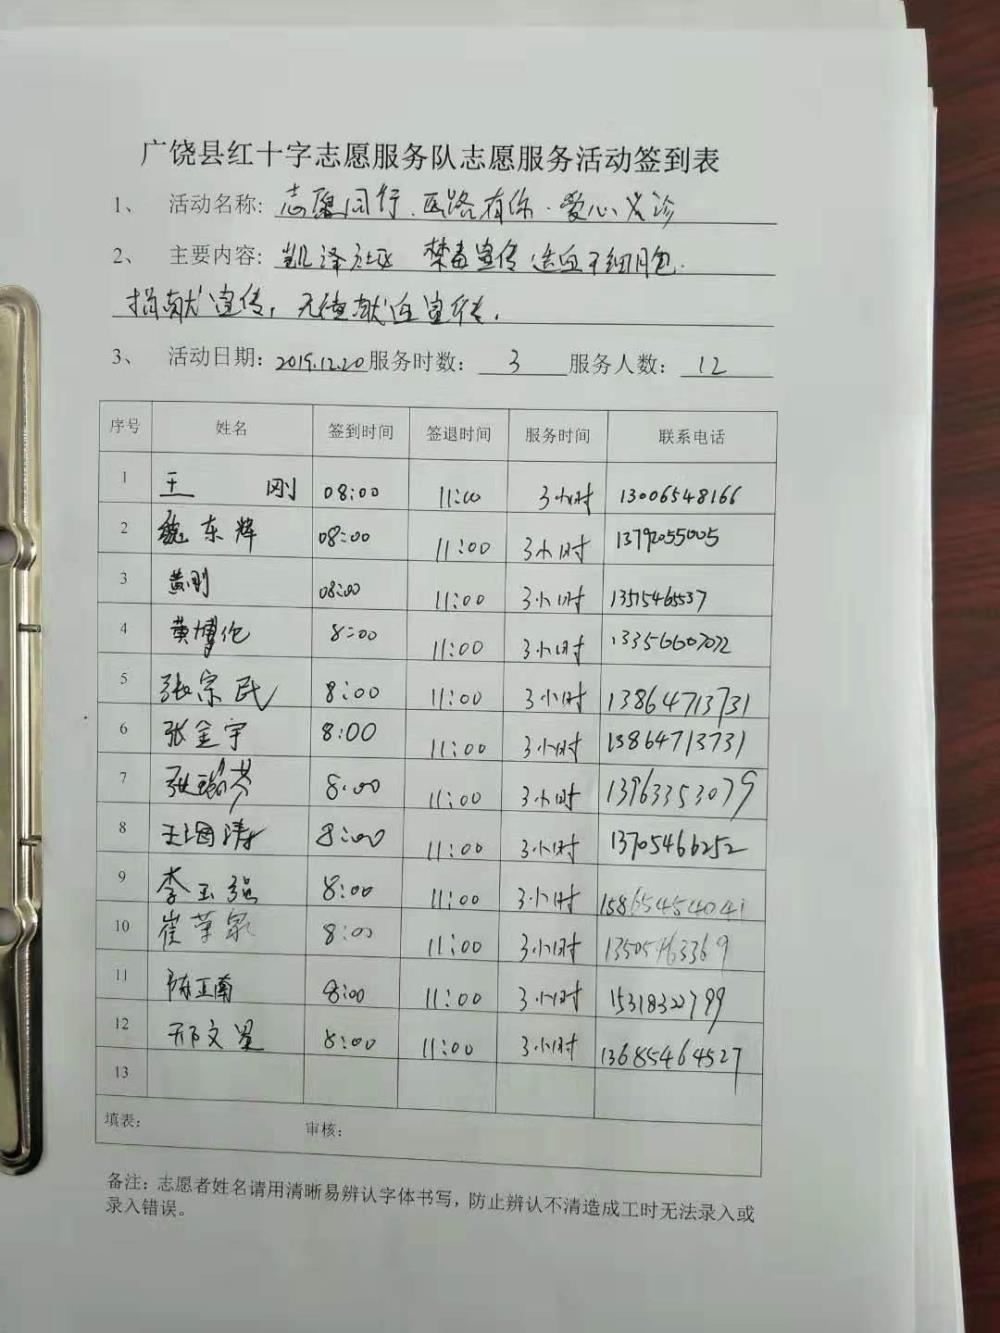 广饶县红十字志愿服务队志愿服务活动签到表
1、 活动名称: 志愿同行.医路有你·爱心义诊
2、 主要内容: 凯泽社区 禁毒宣传 造血干细胞
捐献宣传,无偿献血宣传.
3、 活动日期: 2019.12.20 服务时数: 3 服务人数: 12
序号 姓名 签到时间 签退时间 服务时间 联系电话
1 王 刚 08:00 11:00 3小时 13006548166
2 魏东辉 08:00 11:00 3小时 13792055005
3 黄刚 08:00 11:00 3小时 13515465537
4 黄博伦 8:00 11:00 3小时 13356607072
5 张宗民 8:00 11:00 3小时 13864713731
6 张金宇 8:00 11:00 3小时 13864713731
7 张瑞芬 8:00 11:00 3小时 13963353079
8 王海涛 8:00 11:00 3小时 13705466252
9 李玉强 8:00 11:00 3小时 15865454041
10 崔荣泉 8:00 11:00 3小时 13505463369
11 陈正南 8:00 11:00 3小时 15318322799
12 邢文星 8:00 11:00 3小时 13685464527
13
填表: 审核:
备注:志愿者姓名请用清晰易辨认字体书写,防止辨认不清造成工时无法录入或
录入错误。